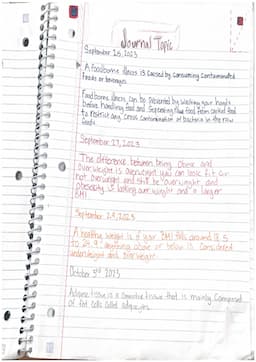 Journal Topic
September 25, 2023
A foodborne illness is caused by consuming contaminated
foods or beverages.
Foodborne illness can be prevented by washing your hands
before handling food and separating raw food from cooked food
to restrict any cross contamination of bacteria in the raw
foods.
September 27, 2023
The difference between being obese and
overweight is overweight you can look fit or
not overweight and still be overweight and
obesity is looking overweight and a larger
BMI.
September 29, 2023
A healthy weight is if your BMI falls around 18.5
to 24.9 anything above or below is considered
underweight and overweight
October 3rd 2023
Adipose tissue is a connective tissue that is mainly composed
of fat cells called adipocytes.